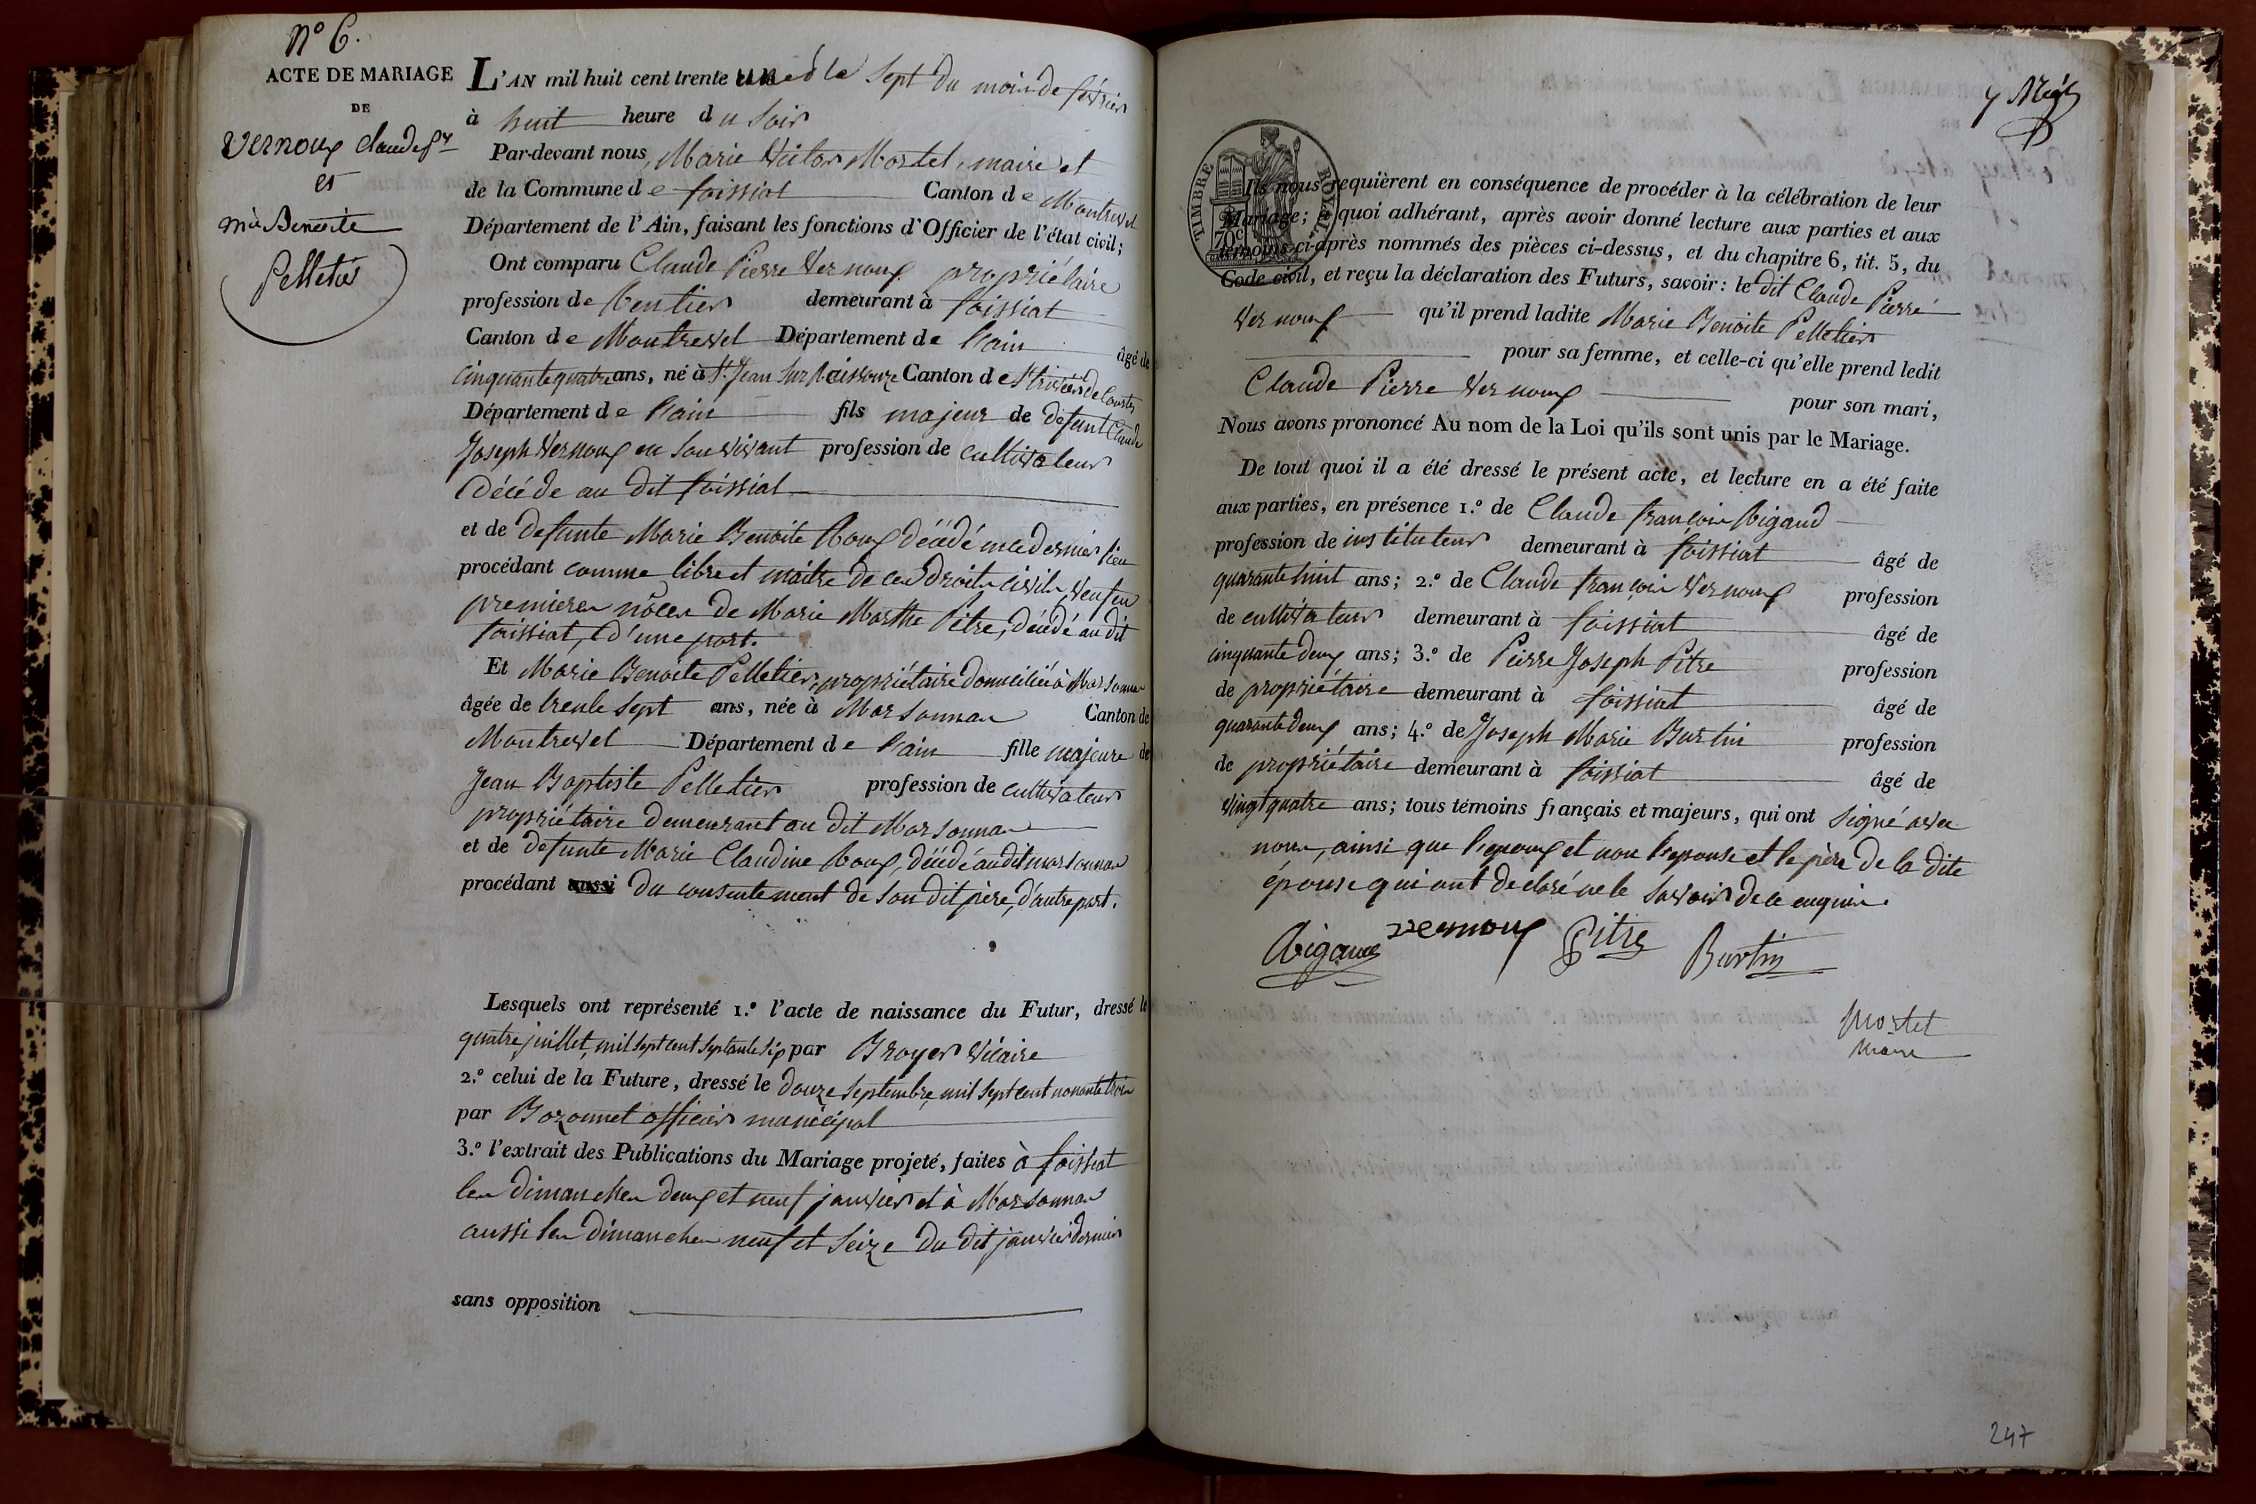 N° 6.
ACTE DE MARIAGE
DE
Vernoux Claude Pre
et
mie Benoite
Pelletier
L'AN mil huit cent trente un et le sept du mois de février
à huit heure du soir
Par-devant nous, Marie Victor Mortel, maire et
de la Commune de foissiat Canton de Montrevel
Département de l'Ain, faisant les fonctions d'Officier de l'état civil;
Ont comparu Claude Pierre Vernoux propriétaire
profession de Rentier demeurant à foissiat
Canton de Montrevel Département de l'ain âgé de
cinquante quatre ans, né à St Jean sur Reissouze Canton de St trivier de Courtes
Département de l'ain fils majeur de défunt Claude
Joseph Vernoux en son vivant profession de cultivateur
décédé au dit foissiat
et de defunte Marie Benoite Roux décédé in ce dernier lieu
procédant comme libre et maitre de ces droits civils, veuf en
premieres nôces de Marie Marthe Pitre, décédé au dit
foissiat, d'une part.
Et Marie Benoite Pelletier, propriétaire domiciliée à Marsonnas
âgée de trente sept ans, née à Marsonnas Canton de
Montrevel Département de l'ain fille majeure de
Jean Baptiste Pelletier profession de cultivateur
propriétaire demeurant au dit Marsonnas
et de defunte Marie Claudine Roux, décédé au dit marsonnas
procédant aussi du consentement de son dit père, d'autre part.
Lesquels ont représenté 1.° l'acte de naissance du Futur, dressé le
quatre juillet, mil sept cent septante six par Broyer Vicaire
2.° celui de la Future, dressé le douze septembre, mil sept cent nonante trois
par Bozonnet officier municipal
3.° l'extrait des Publications du Mariage projeté, faites à foissiat
les dimanches deux et neuf janvier et à Marsonnas
aussi les dimanches neuf et seize du dit janvier dernier
sans opposition
TIMBRE ROYAL
70c
Ils nous requièrent en conséquence de procéder à la célébration de leur
Mariage; à quoi adhérant, après avoir donné lecture aux parties et aux
témoins ci-après nommés des pièces ci-dessus, et du chapitre 6, tit. 5, du
Code civil, et reçu la déclaration des Futurs, savoir: le dit Claude Pierre
Vernoux qu'il prend ladite Marie Benoite Pelletier
pour sa femme, et celle-ci qu'elle prend ledit
Claude Pierre Vernoux pour son mari,
Nous avons prononcé Au nom de la Loi qu'ils sont unis par le Mariage.
De tout quoi il a été dressé le présent acte, et lecture en a été faite
aux parties, en présence 1.° de Claude françois Rigaud
profession de instituteur demeurant à foissiat âgé de
quarante huit ans; 2.° de Claude françois Vernoux profession
de cultivateur demeurant à foissiat âgé de
cinquante deux ans; 3.° de Pierre Joseph Pitre profession
de propriétaire demeurant à foissiat âgé de
quarante deux ans; 4.° de Joseph Marie Burtin profession
de propriétaire demeurant à foissiat âgé de
vingt quatre ans; tous témoins français et majeurs, qui ont signé avec
nous, ainsi que l'epoux et non l'epouse et le père de la dite
épouse qui ont declaré ne le savoir de ce enquis.
Rigaud Vernoux Pitre Burtin
Mortel
Maire
247